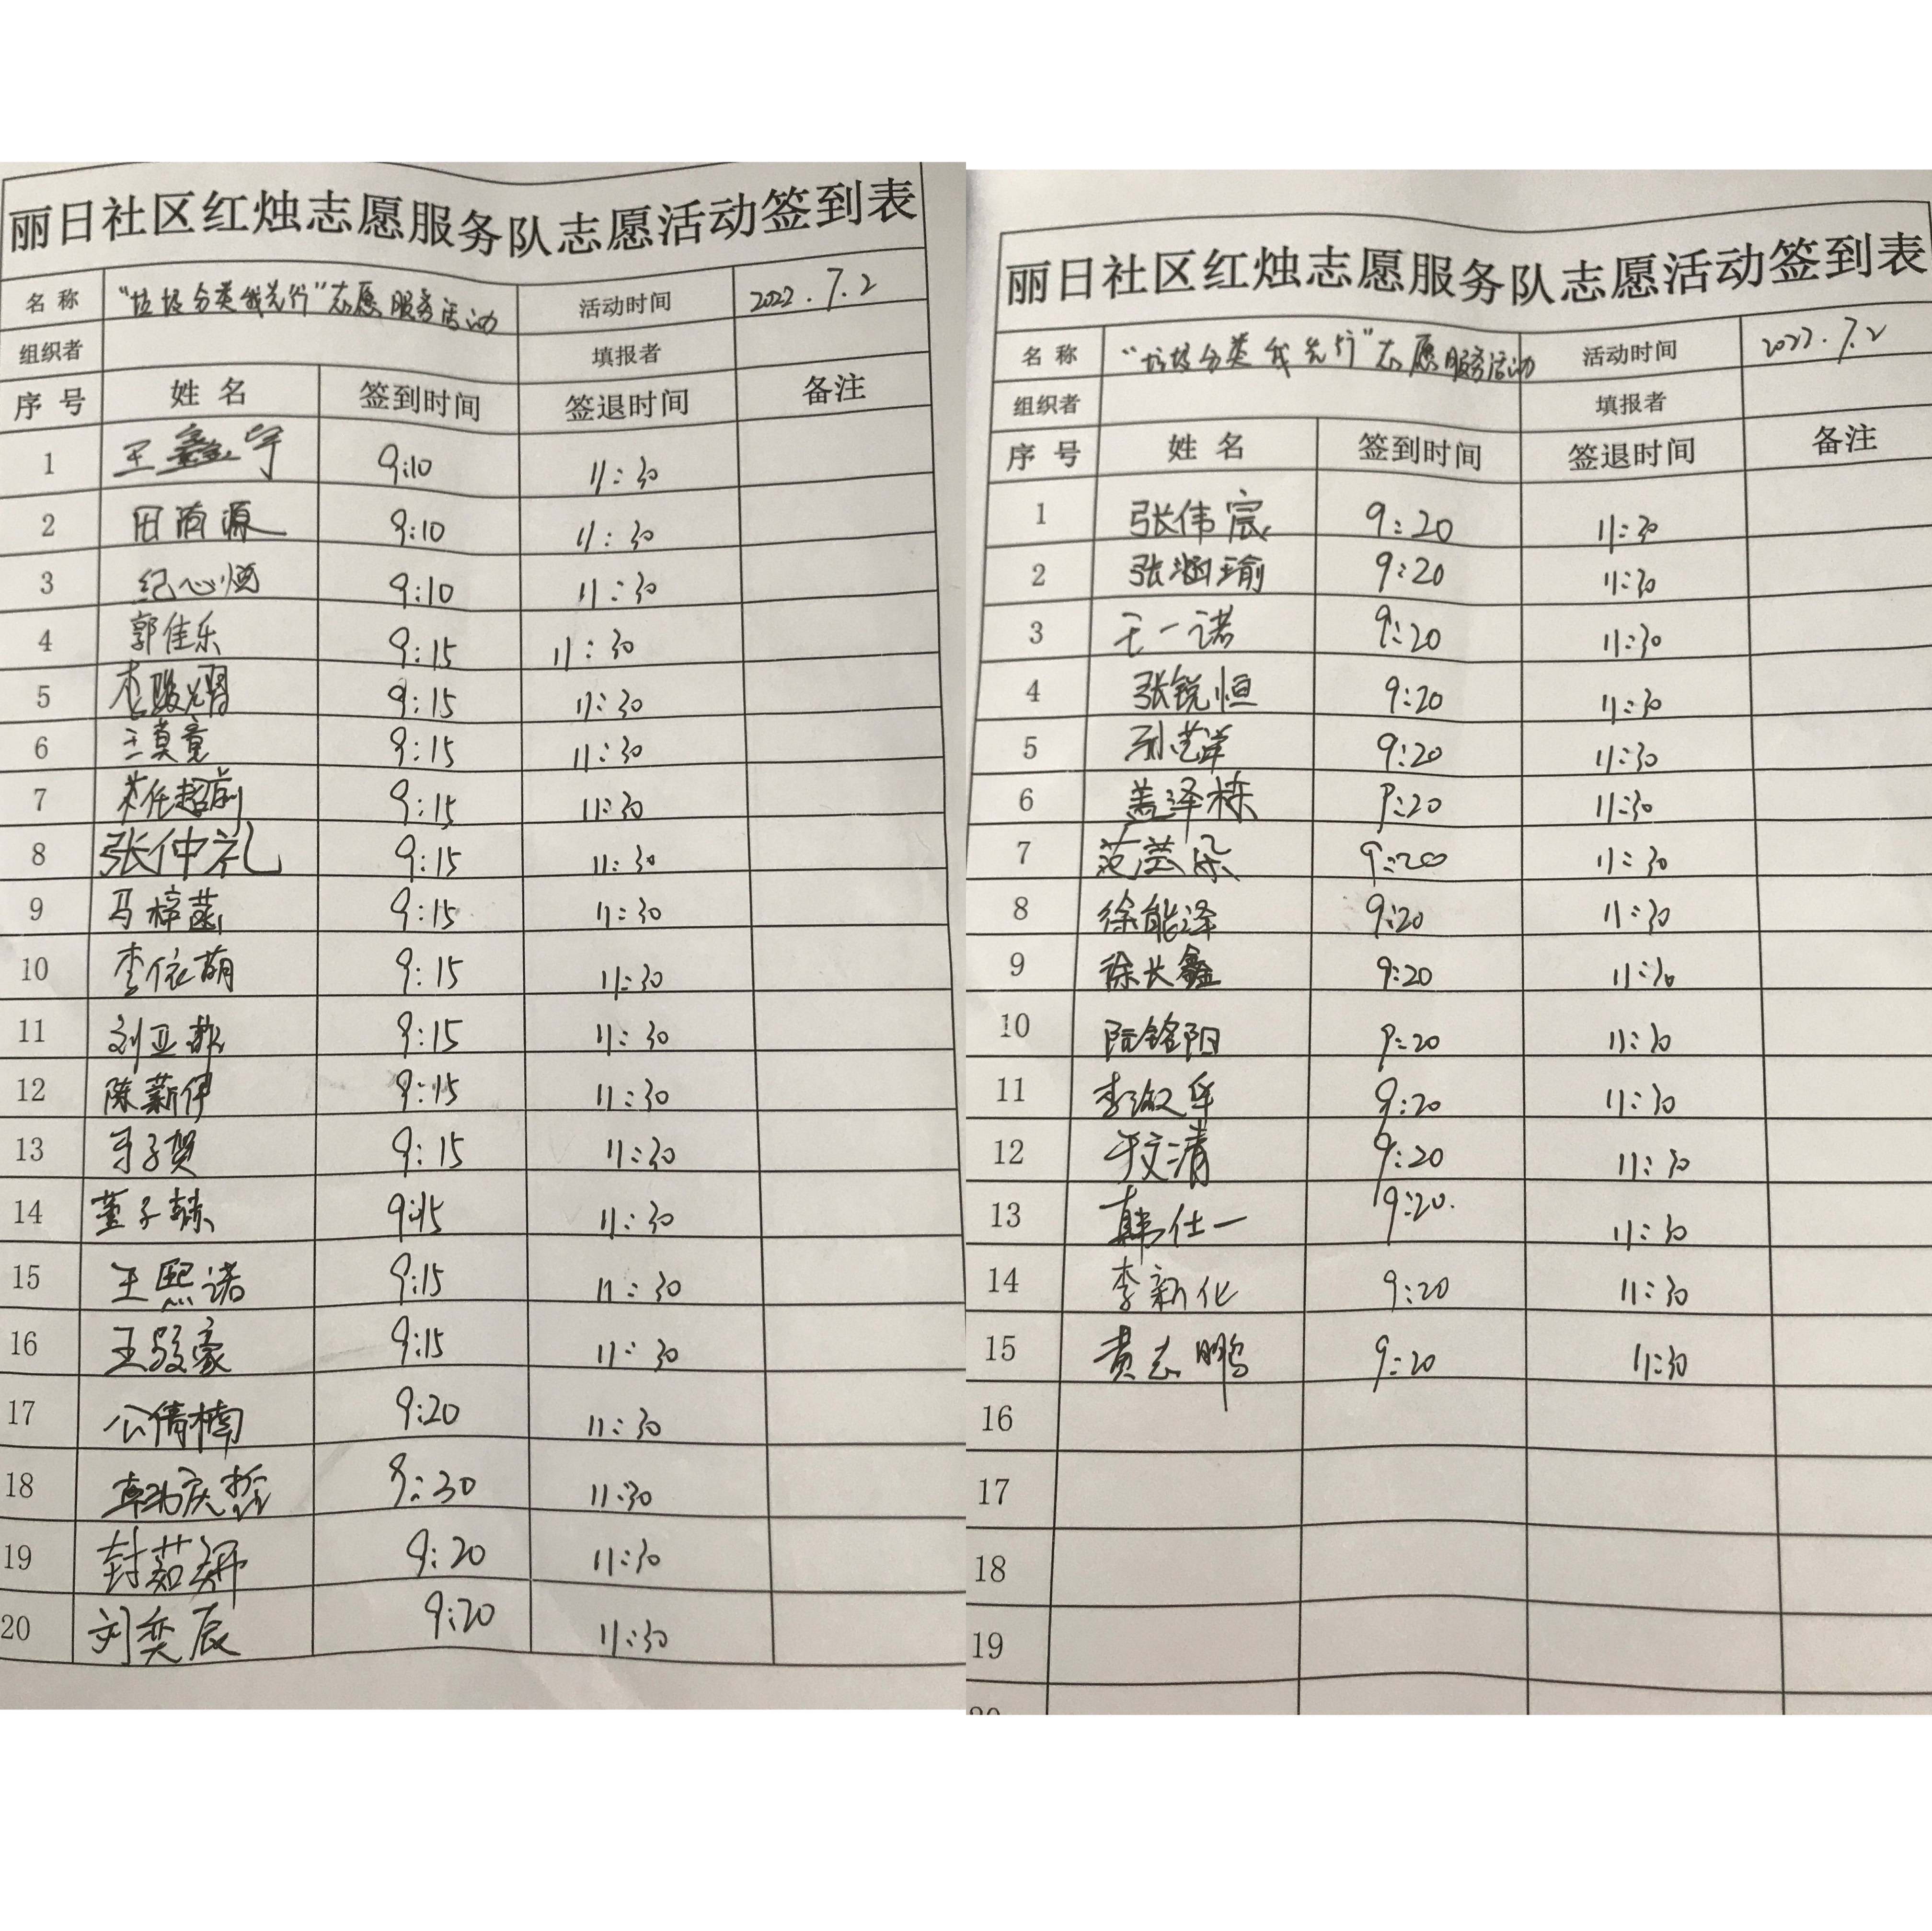 丽日社区红烛志愿服务队志愿活动签到表
名称 "垃圾分类我先行"志愿服务活动 活动时间 2022.7.2
组织者 填报者
序号 姓名 签到时间 签退时间 备注
1 王鑫宇 9:10 11:30
2 田 源 9:10 11:30
3 纪心恒 9:10 11:30
4 郭佳乐 9:15 11:30
5 李 9:15 11:30
6 王莫竟 9:15 11:30
7 任超前 9:15 11:30
8 张仲礼 9:15 11:30
9 马梓菡 9:15 11:30
10 李依萌 9:15 11:30
11 刘亚 9:15 11:30
12 陈薪伊 9:15 11:30
13 子贺 9:15 11:30
14 董子赫 9:15 11:30
15 王熙诺 9:15 11:30
16 王毅豪 9:15 11:30
17 公倩楠 9:20 11:30
18 庆哲 9:30 11:30
19 封茹妍 9:20 11:30
20 刘奕辰 9:20 11:30
丽日社区红烛志愿服务队志愿活动签到表
名称 "垃圾分类我先行"志愿服务活动 活动时间 2022.7.2
组织者 填报者
序号 姓名 签到时间 签退时间 备注
1 张伟宸 9:20 11:30
2 张涵瑜 9:20 11:30
3 王一诺 9:20 11:30
4 张锐恒 9:20 11:30
5 孙艺洋 9:20 11:30
6 盖泽栋 9:20 11:30
7 范芸朵 9:20 11:30
8 徐能泽 9:20 11:30
9 徐长鑫 9:20 11:30
10 阮铭阳 9:20 11:30
11 李 9:20 11:30
12 于文清 9:20 11:30
13 韩仕一 9:20. 11:30
14 李新化 9:20 11:30
15 黄志鹏 9:20 11:30
16
17
18
19
20